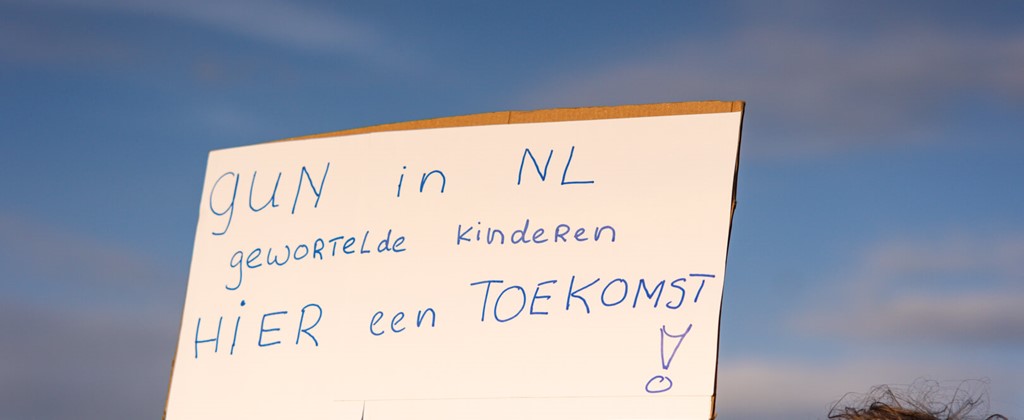 gUN in NL
gewORTeLde kindeRen
HiER een TOEKOMST
!